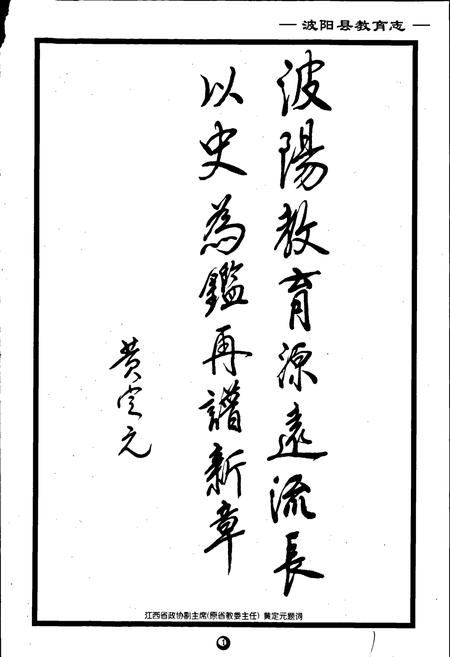 — 波阳县教育志 —
波陽教育源遠流長
以史為鑑再譜新章
黄定元
江西省政协副主席(原省教委主任) 黄定元题词